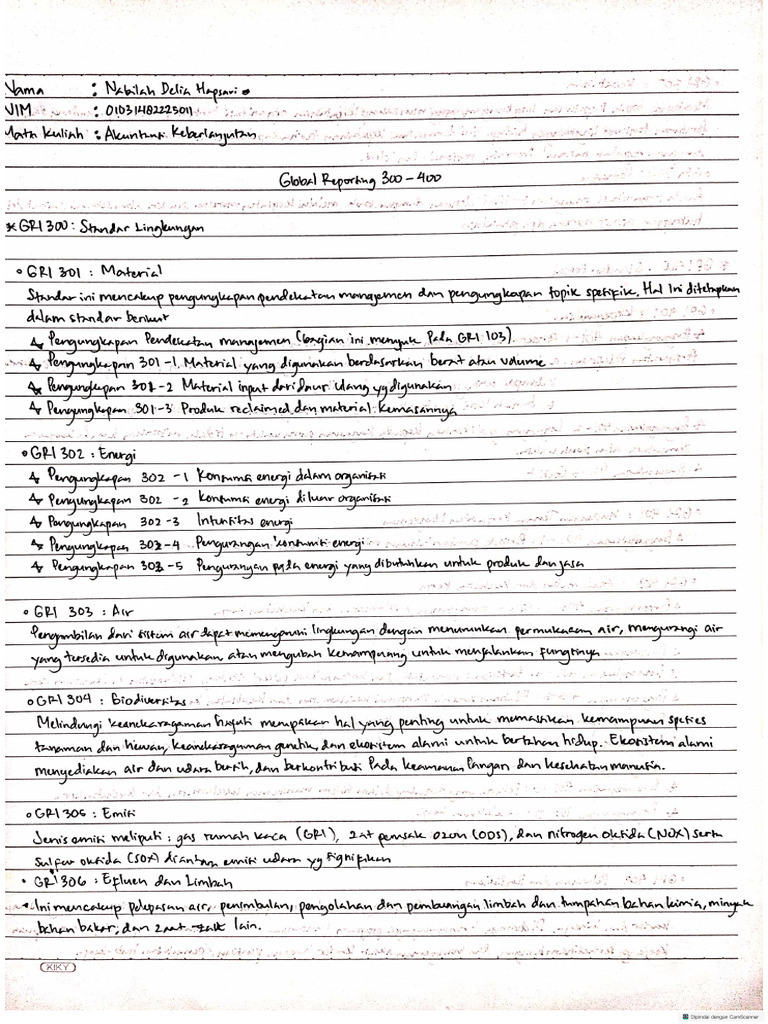 Nama : Nabilah Delia Hapsari
NIM : 01031482225011
Mata Kuliah : Akuntansi Keberlanjutan
Global Reporting 300 - 400
* GRI 300 : Standar Lingkungan
∘ GRI 301 : Material
Standar ini mencakup pengungkapan pendekatan manajemen dan pengungkapan topik spesifik. Hal ini ditetapkan
dalam standar berikut
Pengungkapan Pendekatan manajemen (bagian ini merujuk Pada GRI 103).
Pengungkapan 301-1 Material yang digunakan berdasarkan berat atau volume
Pengungkapan 301-2 Material input dari daur ulang yg digunakan
Pengungkapan 301-3 Produk reclaimed dan material kemasannya
∘ GRI 302 : Energi
Pengungkapan 302 -1 Konsumsi energi dalam organisasi
Pengungkapan 302 -2 Konsumsi energi diluar organisasi
Pengungkapan 302-3 Intensitas energi
Pengungkapan 302-4 Pengurangan konsumsi energi
Pengungkapan 302-5 Pengurangan pada energi yang dibutuhkan untuk produk dan jasa
∘ GRI 303 : Air
Pengambilan dari sistem air dapat memengaruhi lingkungan dengan menurunkan permukaan air, mengurangi air
yang tersedia untuk digunakan atau mengubah kemampuang untuk menjalankan fungsinya
∘ GRI 304 : Biodiversitas
Melindungi keanekaragaman hayati merupakan hal yang penting untuk memastikan kemampuan spesies
tanaman dan hewan, keanekaragaman genetik, dan ekosistem alami untuk bertahan hidup. Ekosistem alami
menyediakan air dan udara bersih, dan berkontribusi Pada keamanan Pangan dan kesehatan manusia.
∘ GRI 305 : Emisi
Jenis emisi meliputi : gas rumah kaca (GRI), zat perusak ozon (ODS), dan nitrogen oksida (NOX) serta
Sulfur oksida (SOX) diantara emisi udara yg signifikan
• GRI 306 : Efluen dan Limbah
• Ini mencakup pelepasan air, penimbulan, pengolahan dan pembuangan limbah dan tumpahan bahan kimia, minyak
bahan bakar, dan zat-zat lain.
KIKY
Dipindai dengan CamScanner